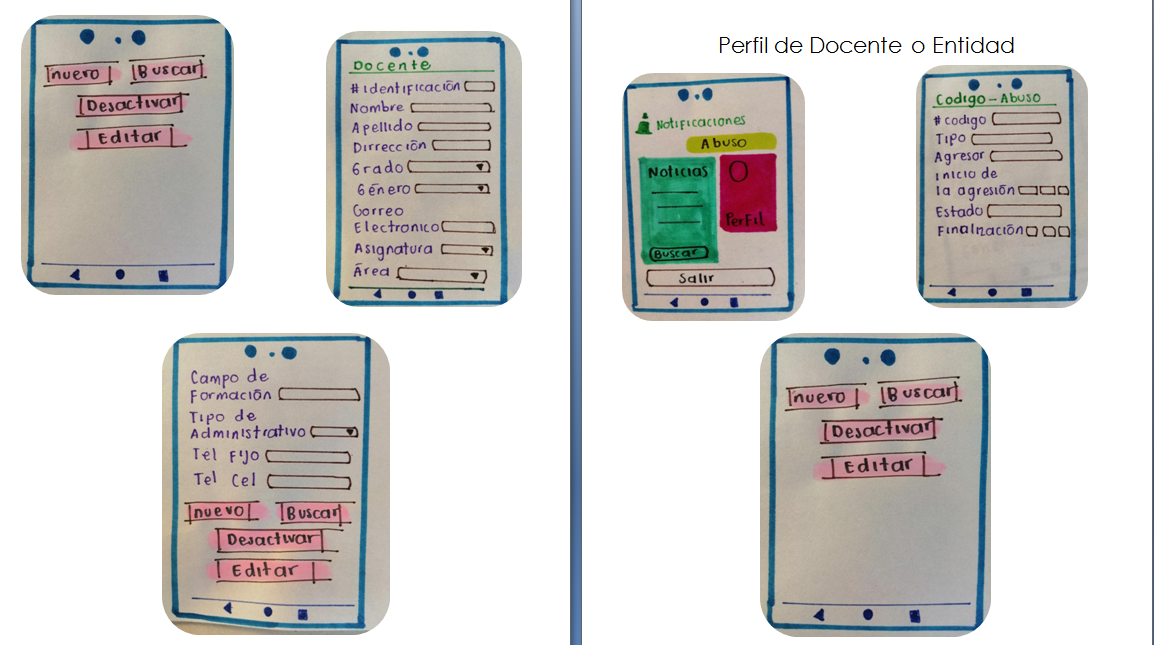 nuevo Buscar
Desactivar
Editar
Docente
# identificación
Nombre
Apellido
Dirrección
Grado
Género
Correo
Electronico
Asignatura
Área
Campo de
Formación
Tipo de
Administrativo
Tel Fijo
Tel Cel
nuevo Buscar
Desactivar
Editar
Perfil de Docente o Entidad
Notificaciones
Abuso
Noticias
Perfil
Buscar
Salir
Codigo - Abuso
# codigo
Tipo
Agresor
inicio de
la agresión
Estado
Finalización
nuevo Buscar
Desactivar
Editar